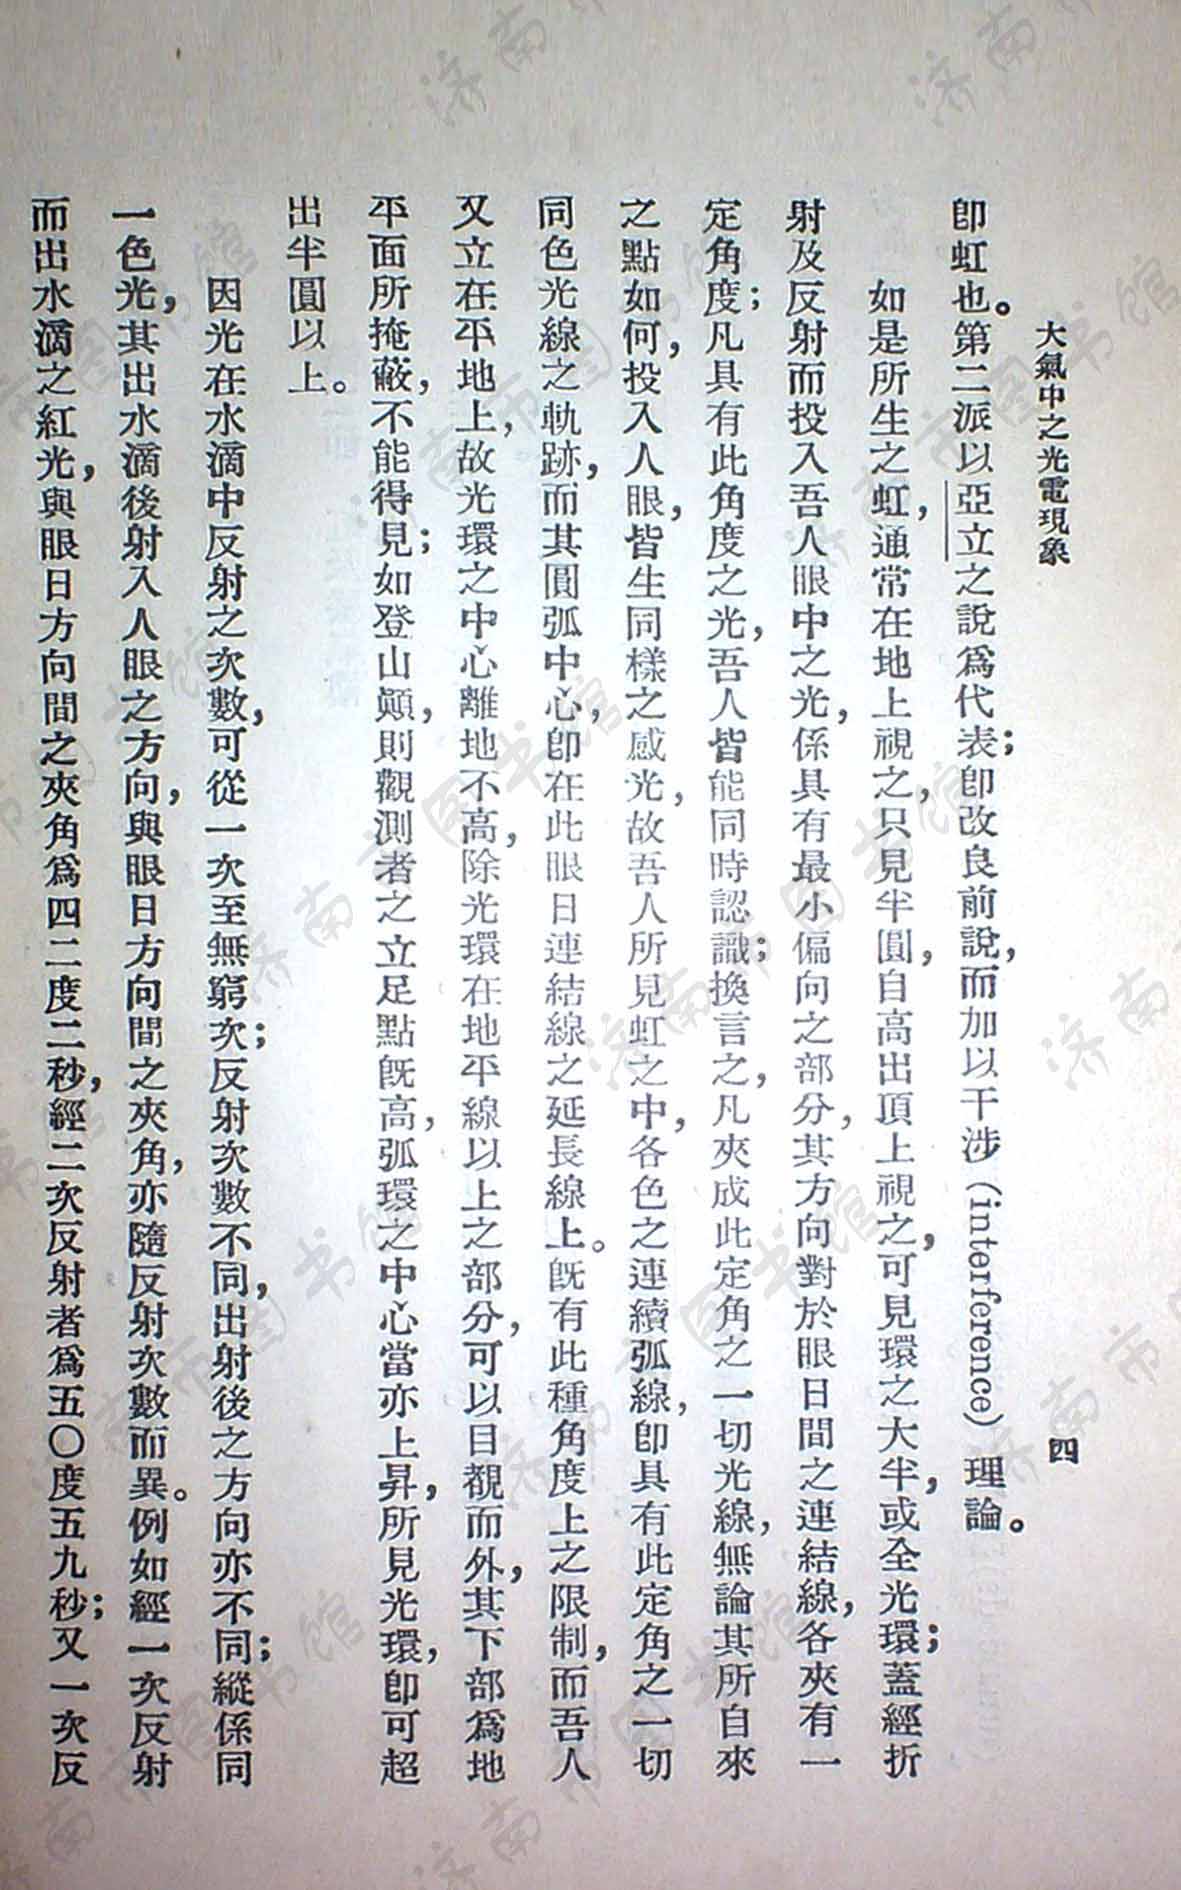 大氣中之光電現象
四
卽虹也。第二派以亞立之說爲代表；卽改良前說，而加以干涉（interference）理論。
如是所生之虹，通常在地上視之，只見半圓，自高出頂上視之，可見環之大半，或全光環；蓋經折
射及反射而投入吾人眼中之光，係具有最小偏向之部分，其方向對於眼日間之連結線，各夾有一
定角度；凡具有此角度之光，吾人皆能同時認識；換言之，凡夾成此定角之一切光線，無論其所自來
之點如何，投入人眼，皆生同樣之感光，故吾人所見虹之中，各色之連續弧線，卽具有此定角之一切
同色光線之軌跡，而其圓弧中心，卽在此眼日連結線之延長線上。旣有此種角度上之限制，而吾人
又立在平地上，故光環之中心離地不高，除光環在地平線以上之部分，可以目覩而外，其下部爲地
平面所掩蔽，不能得見；如登山巔，則觀測者之立足點旣高，弧環之中心當亦上昇，所見光環，卽可超
出半圓以上。
因光在水滴中反射之次數，可從一次至無窮次；反射次數不同，出射後之方向亦不同；縱係同
一色光，其出水滴後射入人眼之方向，與眼日方向間之夾角，亦隨反射次數而異。例如經一次反射
而出水滴之紅光，與眼日方向間之夾角爲四二度二秒，經二次反射者爲五〇度五九秒；又一次反
济南市图书馆